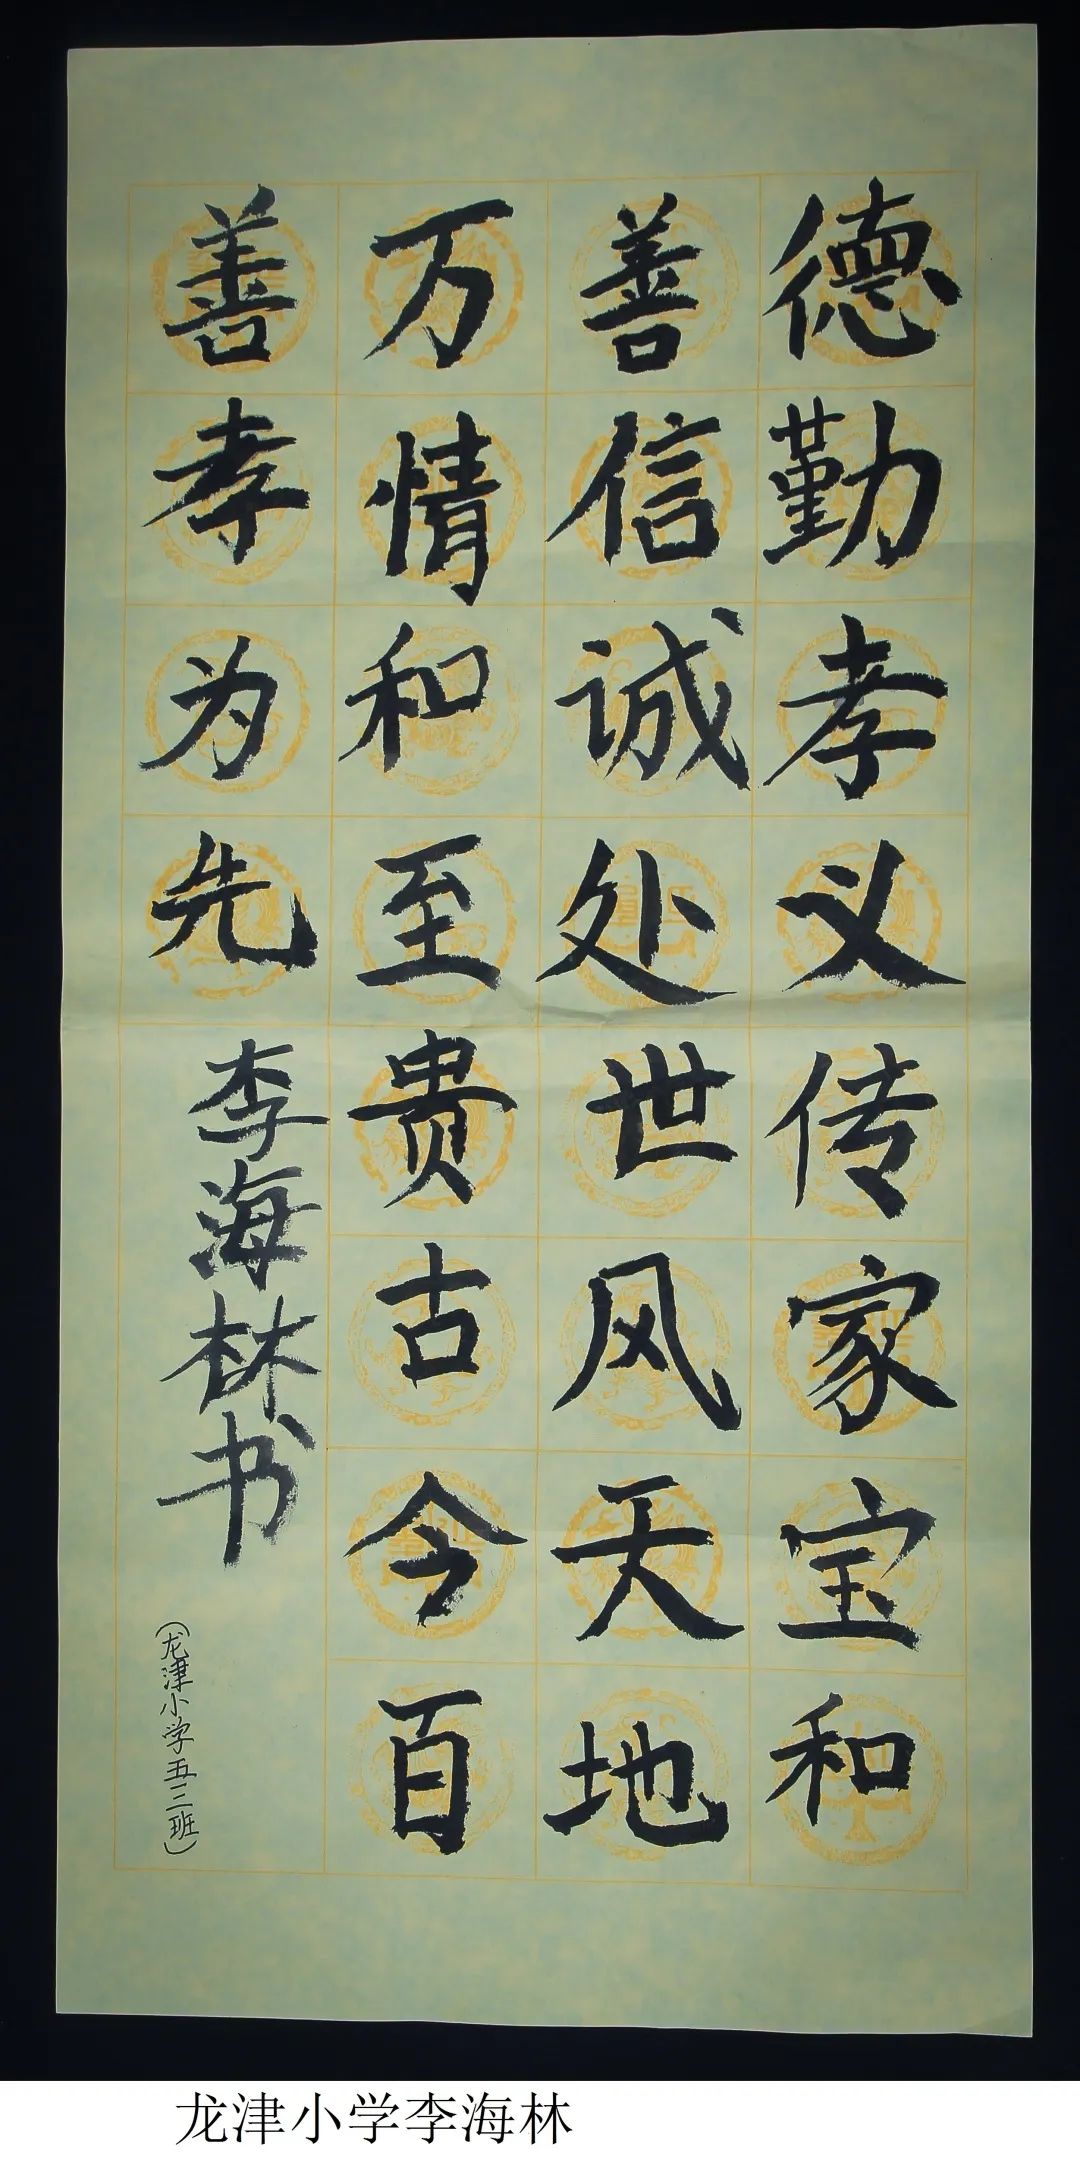 德勤孝义传家宝和
善信诚处世风天地
万情和至贵古今百
善孝为先
李海林书
（龙津小学五三班）
龙津小学李海林